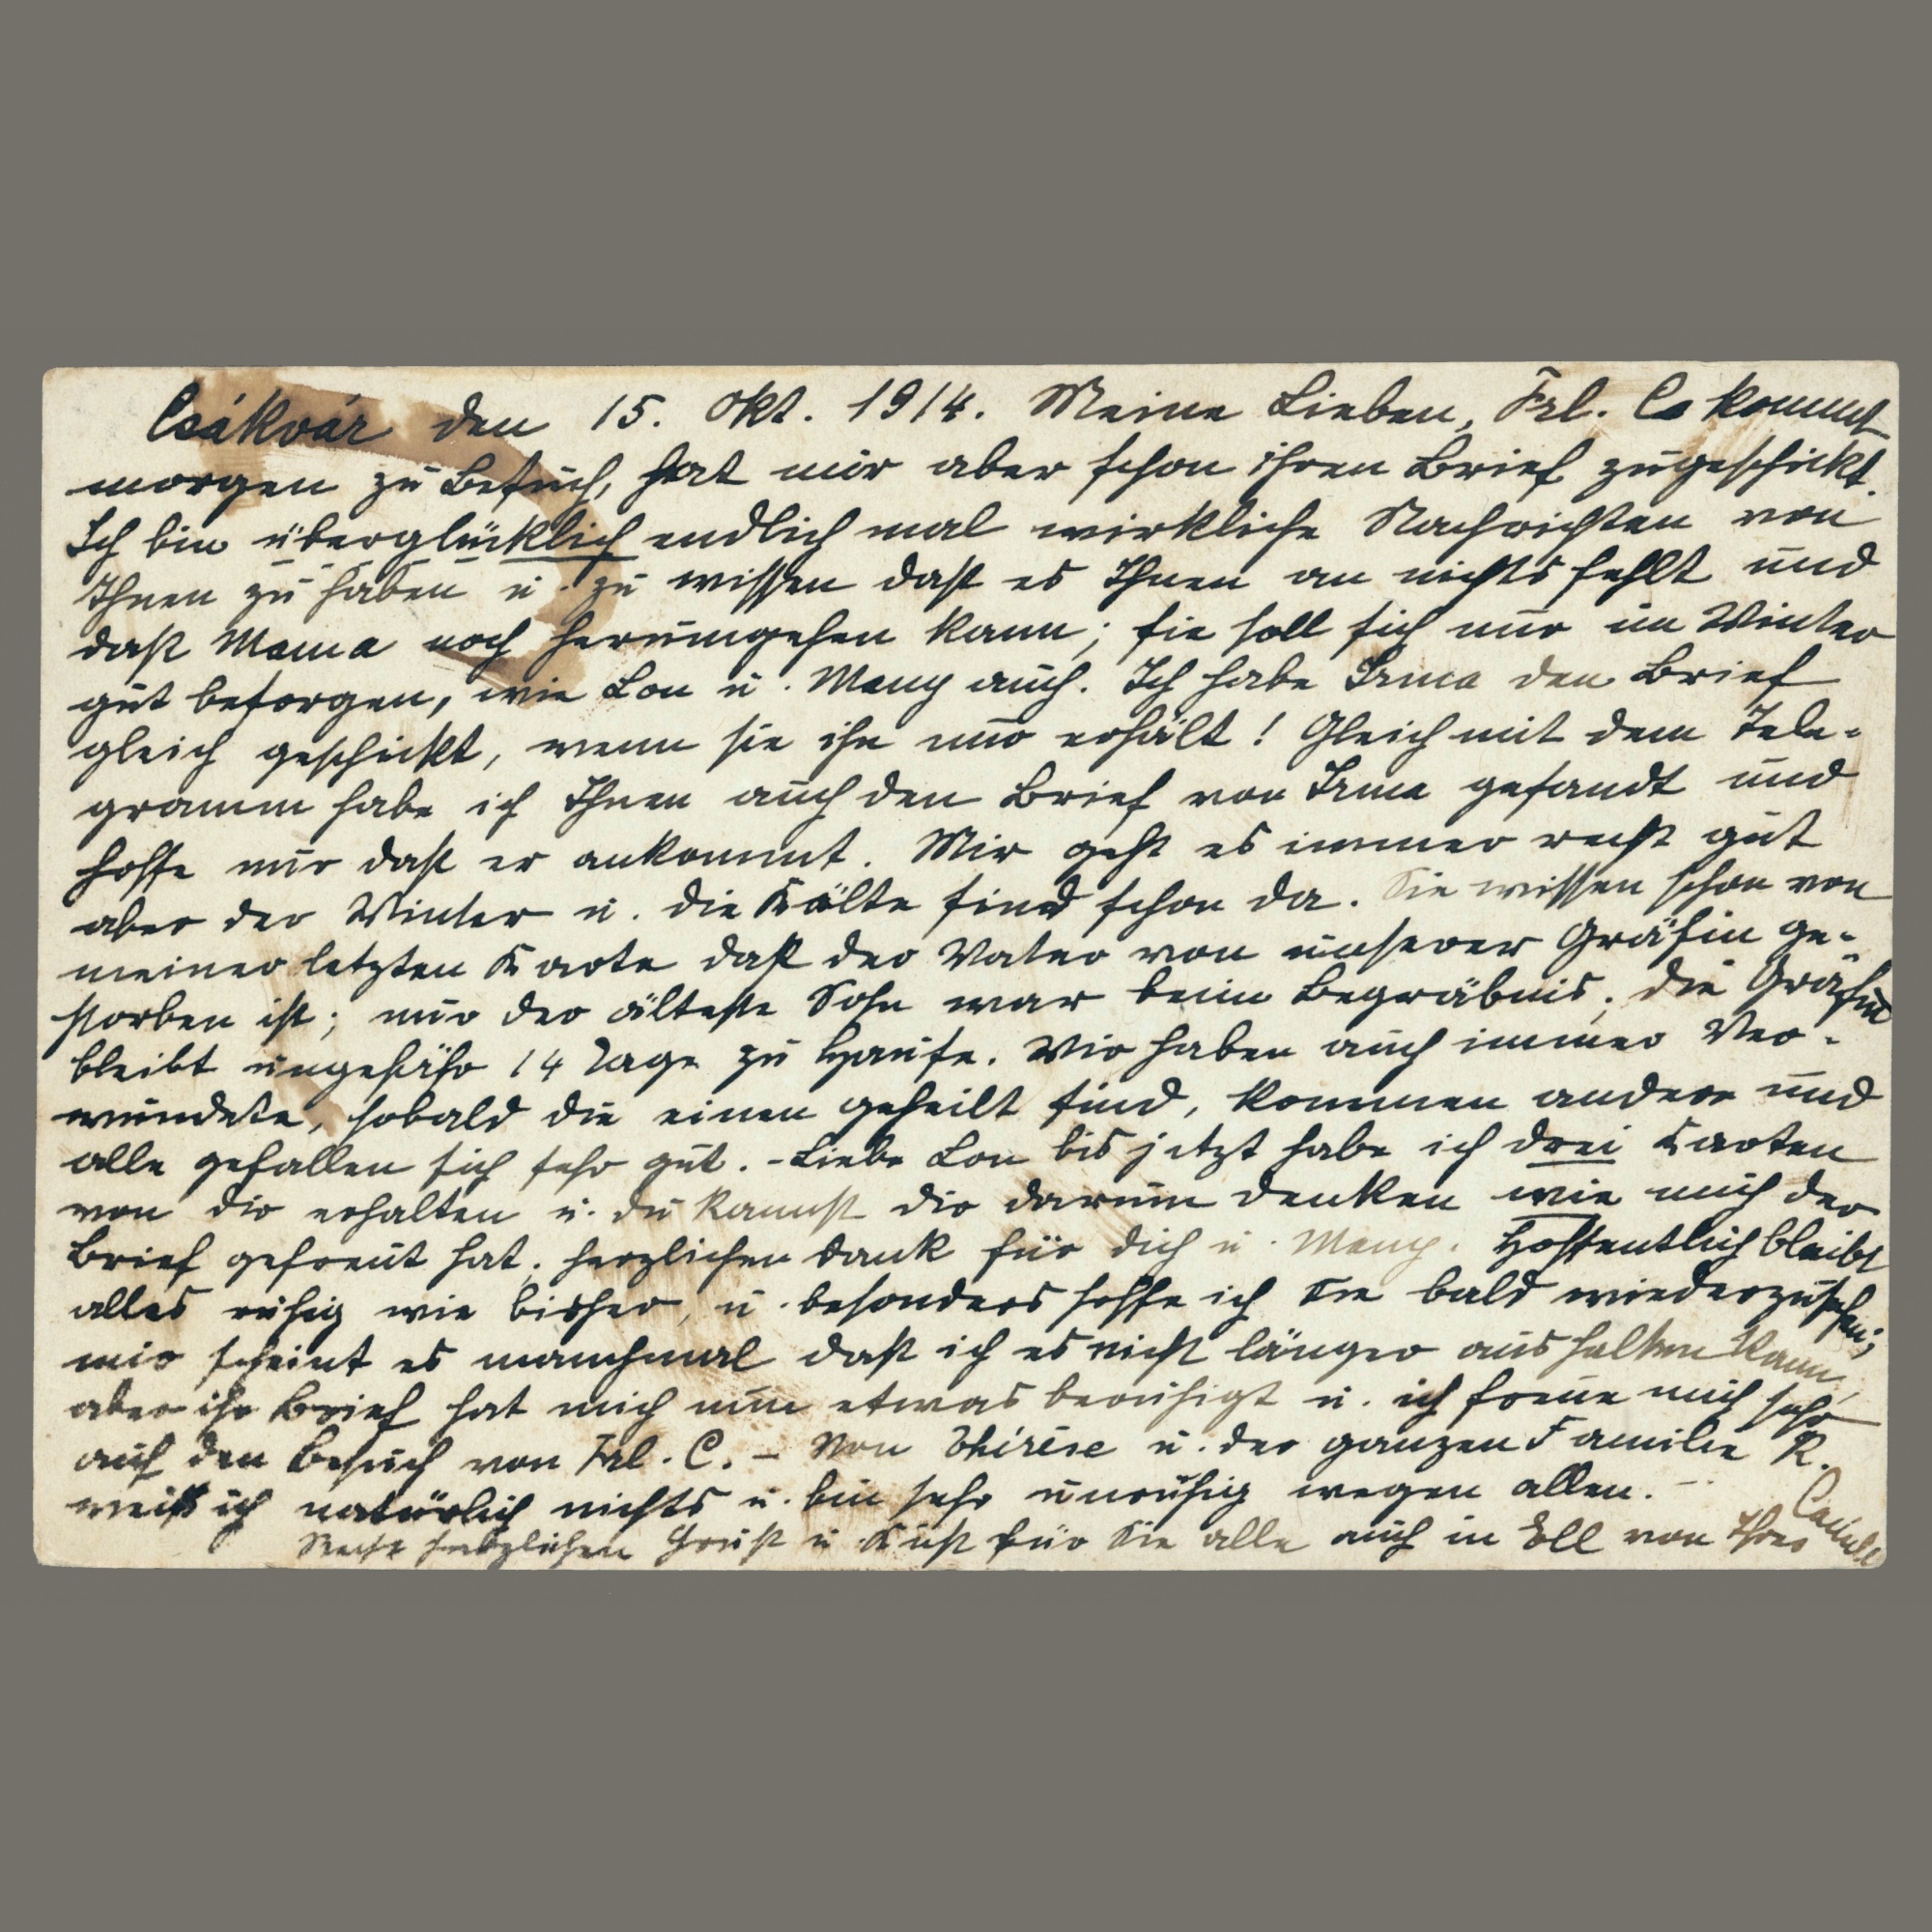 Csákvár den 15. Okt. 1914. Meine Lieben, Frl. C. kommt
morgen zu Besuch, hat mir aber schon ihren Brief zugeschickt.
Ich bin überglücklich endlich mal wirkliche Nachrichten von
Ihnen zu haben u. zu wissen daß es Ihnen an nichts fehlt und
daß Mama noch herumgehen kann; sie soll sich nur im Winter
gut besorgen, wie Lou u. Many auch. Ich habe Irma den Brief
gleich geschickt, wenn sie ihn nur erhält! Gleich mit dem Tele-
gramm habe ich Ihnen auch den Brief von Irma gesandt und
hoffe nur daß er ankommt. Mir geht es immer recht gut
aber der Winter u. die Kälte sind schon da. Sie wissen schon von
meiner letzten Karte daß der Vater von unserer Gräfin ge-
storben ist; nur der älteste Sohn war beim Begräbnis; die Gräfin
bleibt ungefähr 14 Tage zu Hause. Wir haben auch immer Ver-
wundete, sobald die einen geheilt sind, kommen andere und
alle gefallen sich sehr gut. - Liebe Lou bis jetzt habe ich drei Karten
von dir erhalten u. du kannst dir darum denken wie mich der
Brief gefreut hat; herzlichen Dank für dich u. Many. Hoffentlich bleibt
alles ruhig wie bisher, u. besonders hoffe ich Sie bald wiederzusehen;
mir scheint es manchmal daß ich es nicht länger aushalten kann,
aber ihr Brief hat mich nun etwas beruhigt u. ich freue mich sehr
auf den Besuch von Frl. C. - Von Thérèse u. der ganzen Familie R.
weiß ich natürlich nichts u. bin sehr unruhig wegen allen. -
Recht herzlichen Gruß u. Kuß für Sie alle auch in Ell von Ihrer